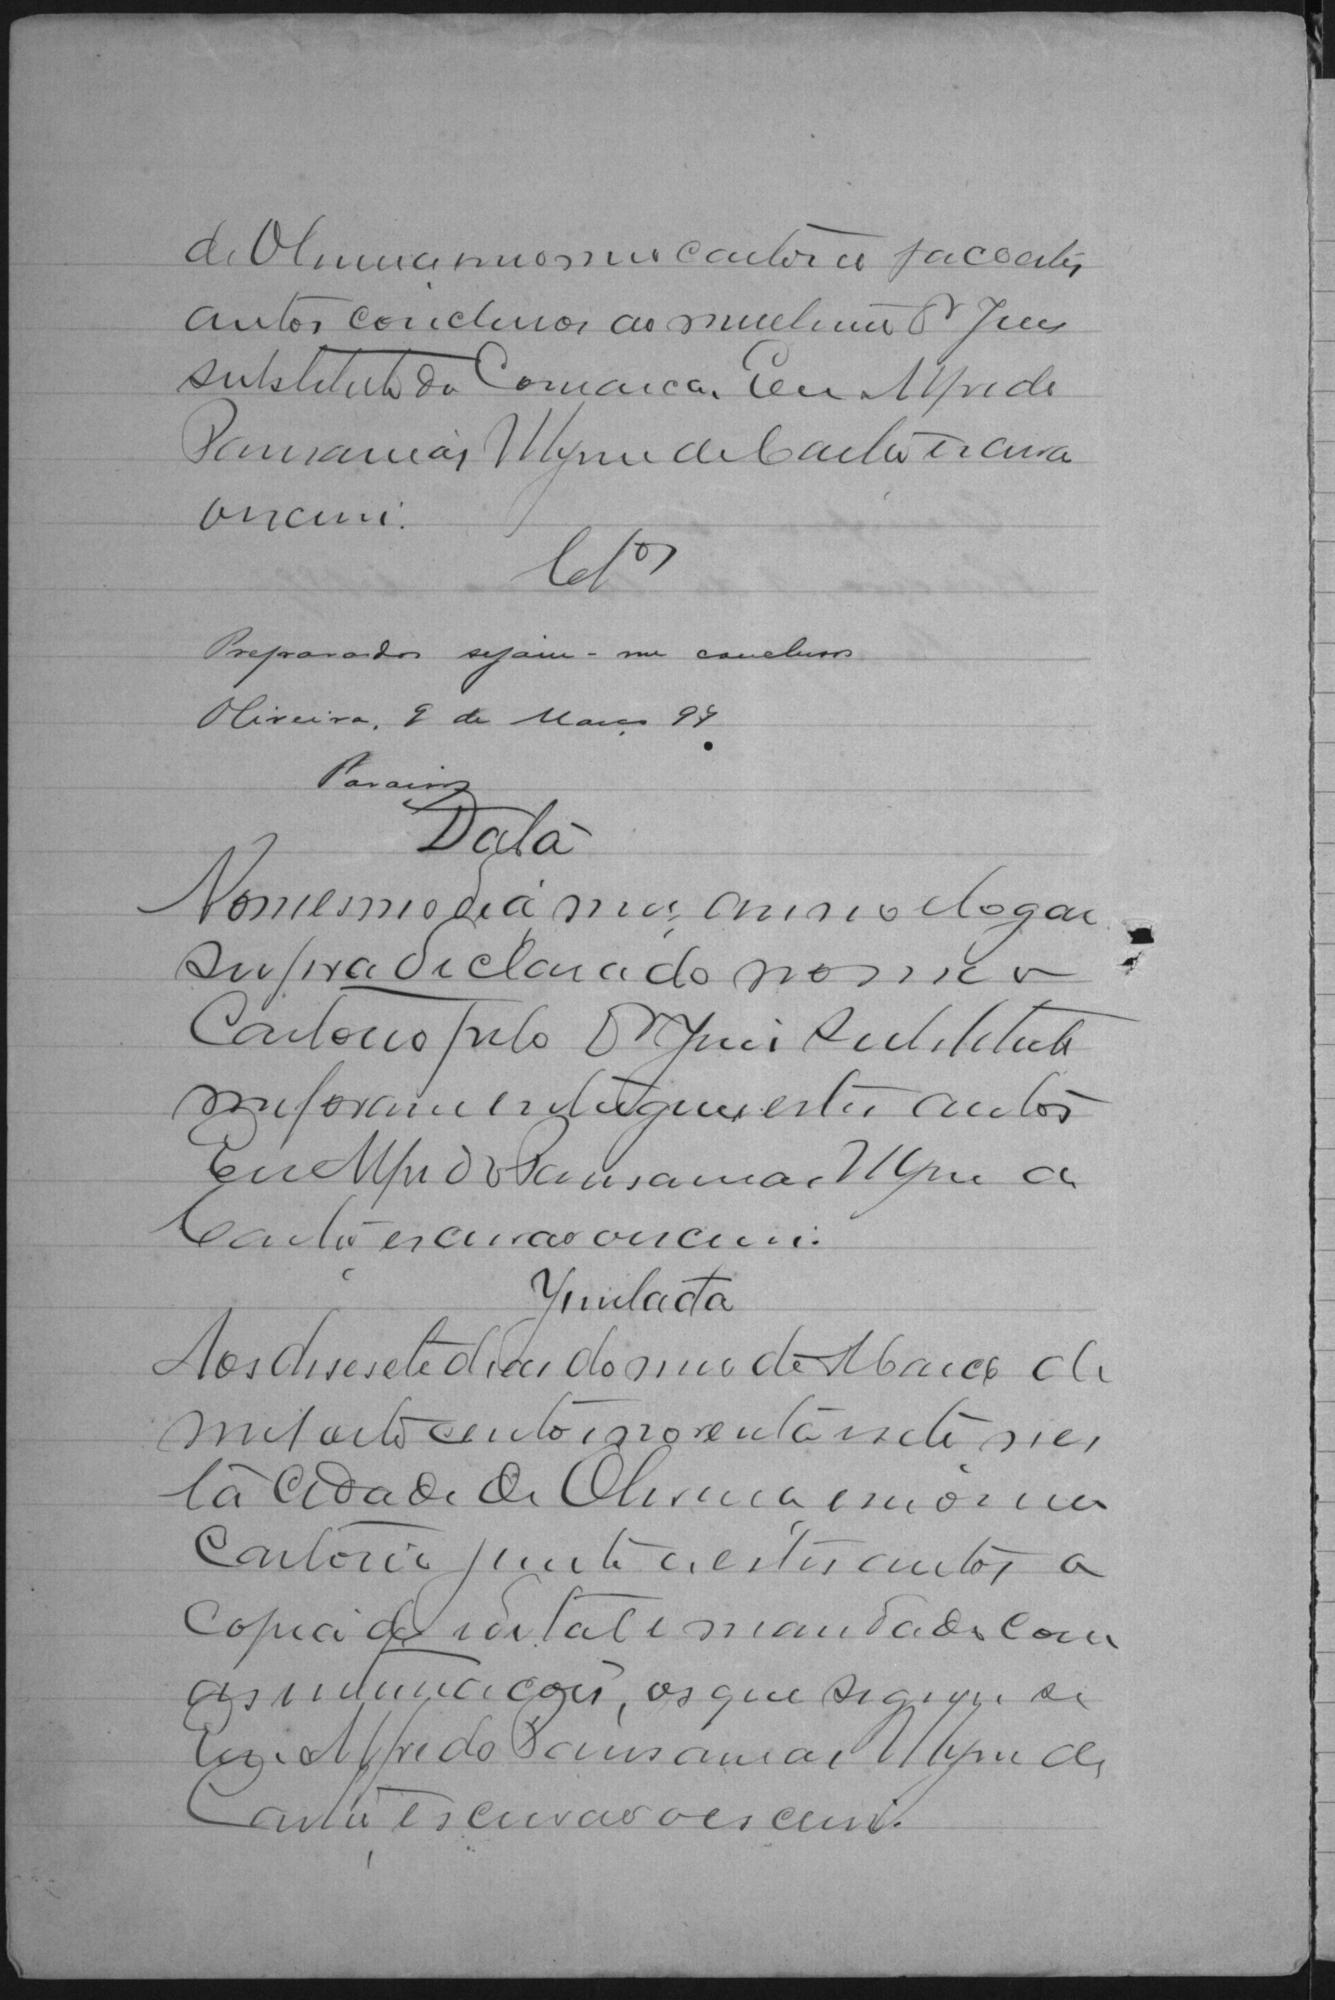 de Oliveira em o meu cartorio faço estes
autos conclusos ao meretissimo Dr Juiz
substituto da Comarca. Eu Alfredo
Pausanias Alyrre de Castro escrivão
o escrevi.
Clos
Preparados sejam-me conclusos
Oliveira, 9 de Março 97
Paraiso
Data
No mesmo dia, mes, anno e logar
supra declarado no meu
Cartorio pelo Dr Juiz Substituto
me foram entregues estes autos
Eu Alfredo Pausanias de
Castro escrivão o escrevi.
Juntada
Aos desesete dias do mes de Março de
mil oito centos e noventa e sete nes
ta cidade de Oliveira em o meu
Cartorio junto a estes autos a
copia do edital e mandado com
as intimações, os que segue se
Eu Alfredo Pausanias de
Castro escrivão o escrevi.